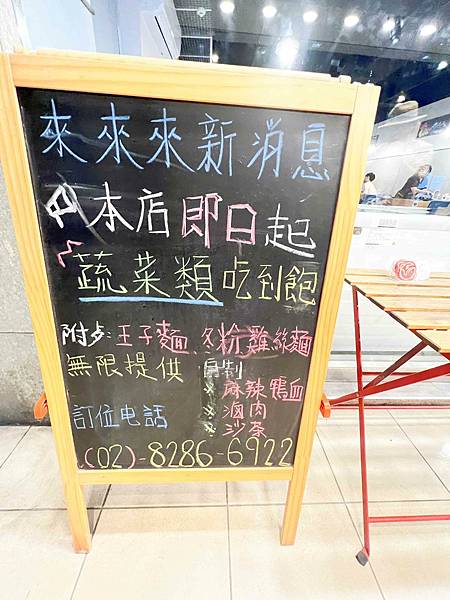 來來來新消息
本店即日起
蔬菜類吃到飽
附步:王子麵 冬粉 雞絲麵
無限提供 自制
※麻辣鴨血
※滷肉
※沙茶
訂位电話
(02)-8286-6922